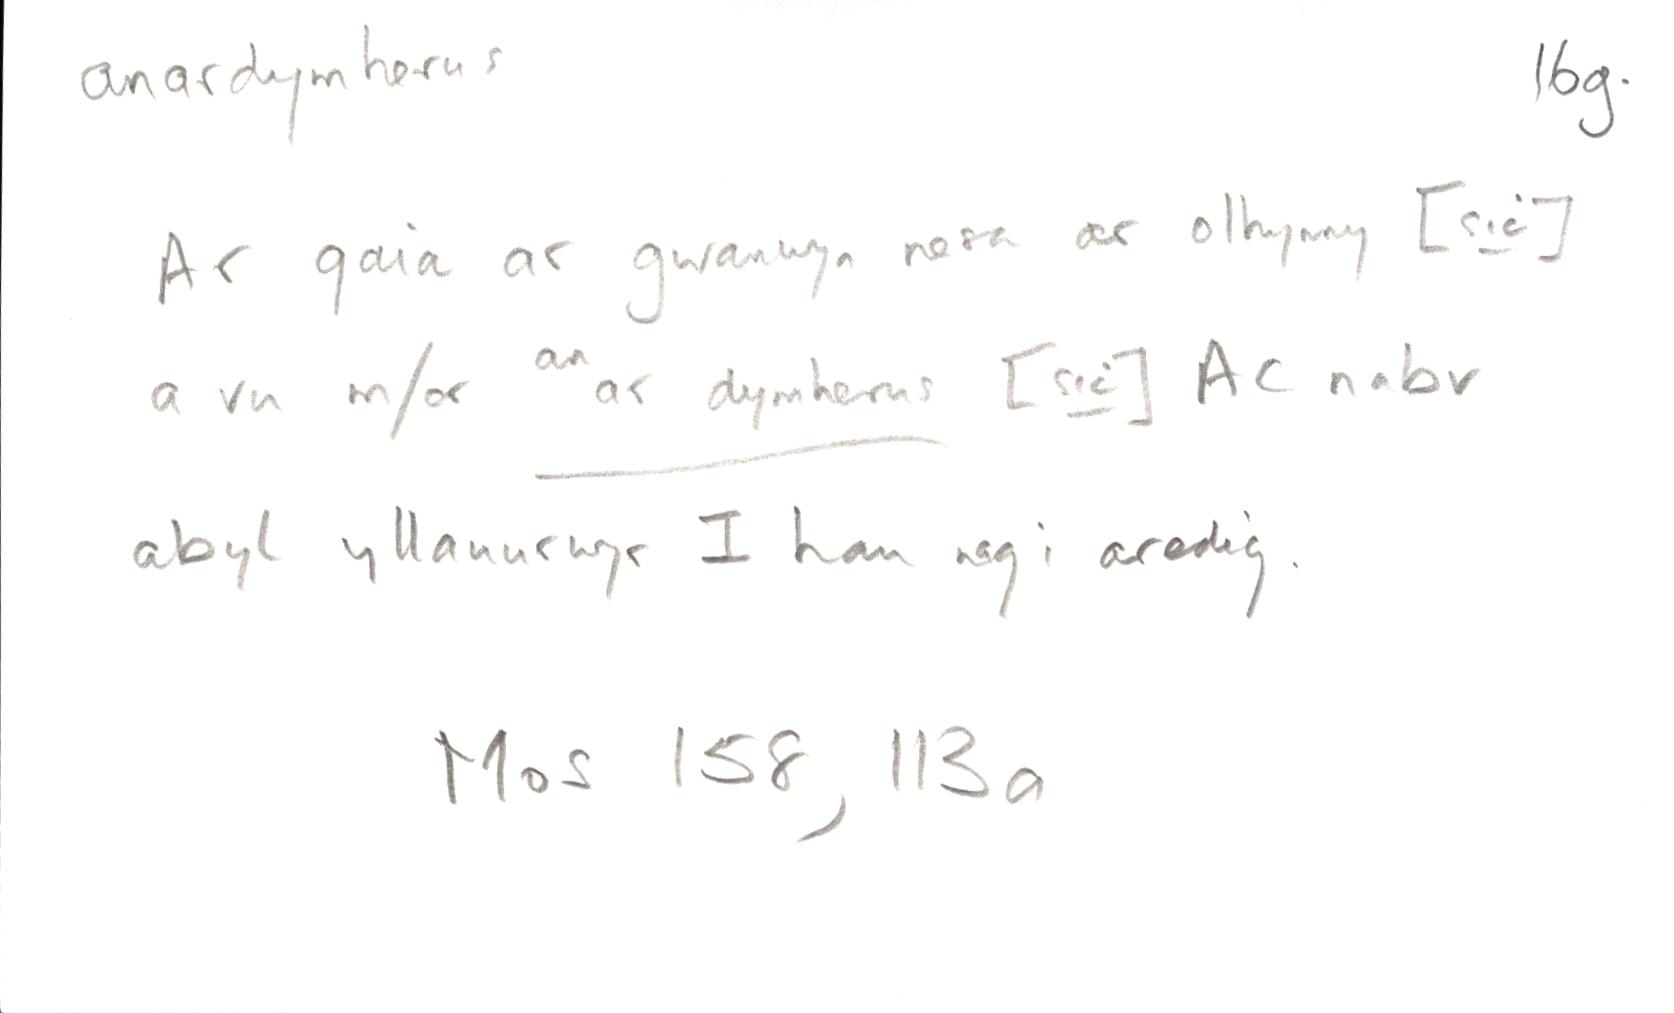 anardymherus 16g.
Ar gaia ar gwanwyn nesa ar olhynny [sic]
a vu m/or an ar dymherus [sic] Ac nabv
abyl yllauurwyr I hau nag i aredig.
Mos 158, 113a